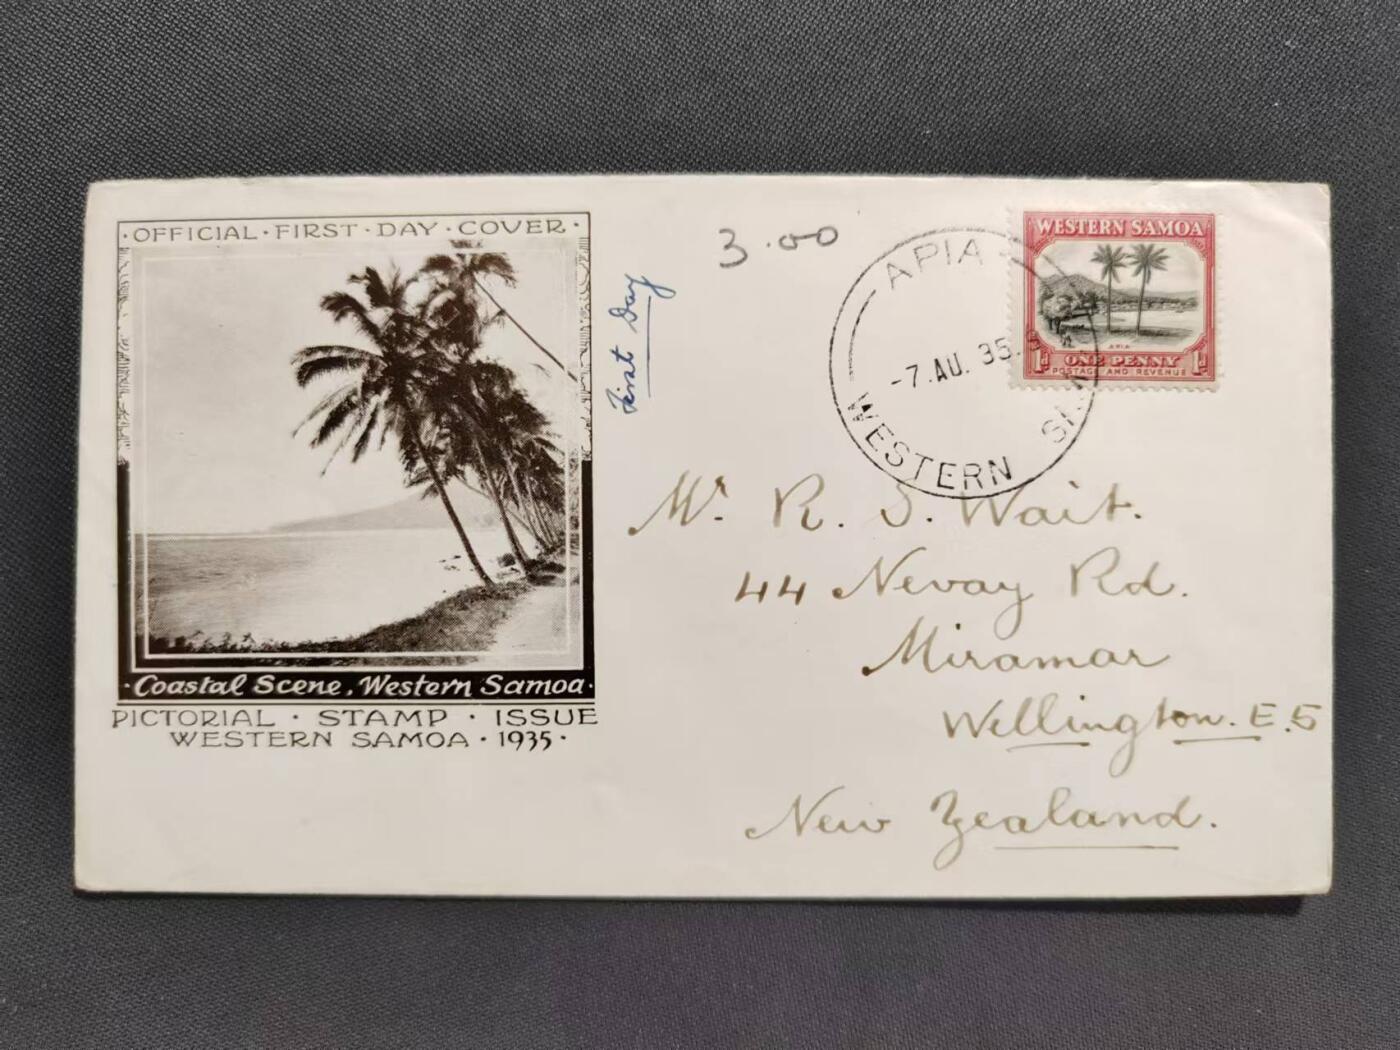 ·OFFICIAL·FIRST·DAY·COVER·
·Coastal Scene, Western Samoa·
PICTORIAL · STAMP · ISSUE
WESTERN SAMOA · 1935·
First Day
3.00
APIA
-7.AU.35.
WESTERN
WESTERN SAMOA
APIA
1d ONE PENNY 1d
POSTAGE AND REVENUE
Mr. R. S. Wait.
44 Nevay Rd.
Miramar
Wellington. E.5
New Zealand.